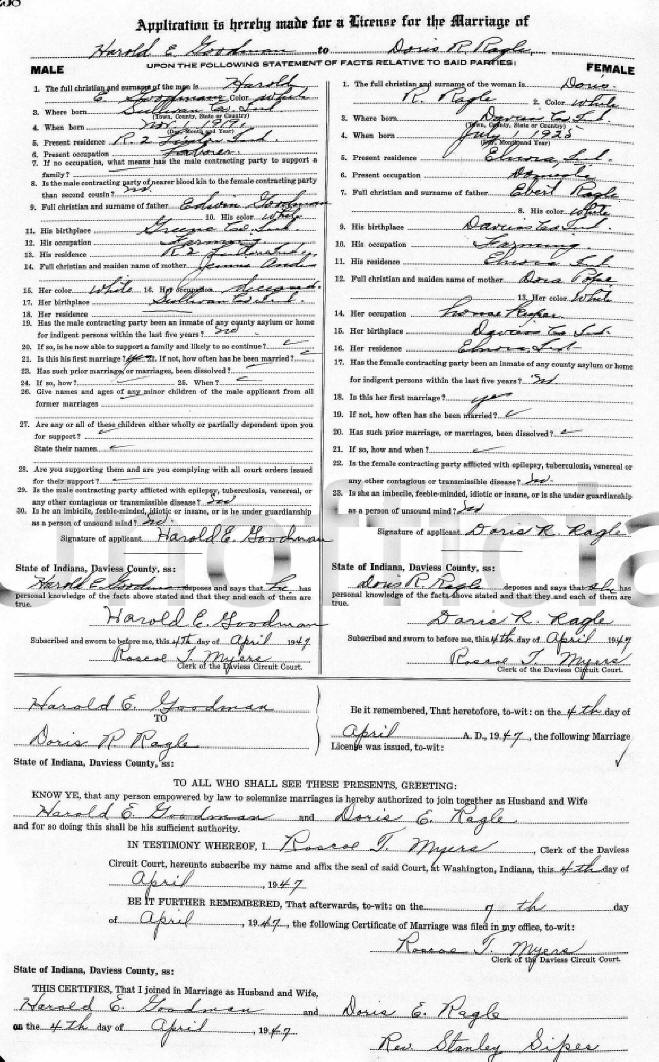 Application is hereby made for a License for the Marriage of
Harold E. Goodman to Doris R. Ragle
UPON THE FOLLOWING STATEMENT OF FACTS RELATIVE TO SAID PARTIES:
MALE
1. The full christian and surname of the man is Harold
E. Goodman Color White
3. Where born Sullivan Co. Ind.
(Town, County, State or Country)
4. When born Nov. 1, 1919
(Day, Month and Year)
5. Present residence R. 2 Ind.
6. Present occupation
7. If no occupation, what means has the male contracting party to support a
family?
8. Is the male contracting party of nearer blood kin to the female contracting party
than second cousin? No
9. Full christian and surname of father Edwin Goodman
10. His color White
11. His birthplace Greene Co. Ind.
12. His occupation Farmer
13. His residence R 2
14. Full christian and maiden name of mother Jennie
15. Her color White 16. Her occupation Deceased
17. Her birthplace Sullivan Co. Ind.
18. Her residence
19. Has the male contracting party been an inmate of any county asylum or home
for indigent persons within the last five years? No
20. If so, is he now able to support a family and likely to continue?
21. Is this his first marriage? yes 22. If not, how often has he been married?
23. Has such prior marriage, or marriages, been dissolved?
24. If so, how? 25. When?
26. Give names and ages of any minor children of the male applicant from all
former marriages
27. Are any or all of these children either wholly or partially dependent upon you
for support?
State their names
28. Are you supporting them and are you complying with all court orders issued
for their support?
29. Is the male contracting party afflicted with epilepsy, tuberculosis, venereal, or
any other contagious or transmissible disease? No
30. Is he an imbicile, feeble-minded, idiotic or insane, or is he under guardianship
as a person of unsound mind? No.
Signature of applicant Harold E. Goodman
State of Indiana, Daviess County, ss:
Harold E Goodman deposes and says that he has
personal knowledge of the facts above stated and that they and each of them are
true.
Harold E. Goodman
Subscribed and sworn to before me, this 4th day of April 1947
Roscoe T. Myers
Clerk of the Daviess Circuit Court.
FEMALE
1. The full christian and surname of the woman is Doris
R. Ragle 2. Color White
3. Where born Daviess Co. Ind.
(Town, County, State or Country)
4. When born July 1925
(Day, Month and Year)
5. Present residence Elnora, Ind.
6. Present occupation
7. Full christian and surname of father Ebert Ragle
8. His color White
9. His birthplace Daviess Co. Ind.
10. His occupation Farming
11. His residence Elnora Ind
12. Full christian and maiden name of mother Dora Pope
13. Her color White
14. Her occupation House Keeper
15. Her birthplace Daviess Co. Ind.
16. Her residence Elnora, Ind
17. Has the female contracting party been an inmate of any county asylum or home
for indigent persons within the last five years? No
18. Is this her first marriage? yes
19. If not, how often has she been married?
20. Has such prior marriage, or marriages, been dissolved?
21. If so, how and when?
22. Is the female contracting party afflicted with epilepsy, tuberculosis, venereal or
any other contagious or transmissible disease? No.
23. Is she an imbecile, feeble-minded, idiotic or insane, or is she under guardianship
as a person of unsound mind? No
Signature of applicant Doris R. Ragle
State of Indiana, Daviess County, ss:
Doris R. Ragle deposes and says that she has
personal knowledge of the facts above stated and that they and each of them are
true.
Doris R. Ragle
Subscribed and sworn to before me, this 4th day of April 1947
Roscoe T. Myers
Clerk of the Daviess Circuit Court.
Harold E. Goodman
TO
Doris R. Ragle
State of Indiana, Daviess County, ss:
Be it remembered, That heretofore, to-wit: on the 4th day of
April A. D., 1947, the following Marriage
License was issued, to-wit:
TO ALL WHO SHALL SEE THESE PRESENTS, GREETING:
KNOW YE, that any person empowered by law to solemnize marriages is hereby authorized to join together as Husband and Wife
Harold E. Goodman and Doris E. Ragle
and for so doing this shall be his sufficient authority.
IN TESTIMONY WHEREOF, I Roscoe T. Myers, Clerk of the Daviess
Circuit Court, hereunto subscribe my name and affix the seal of said Court, at Washington, Indiana, this 4th day of
April, 1947
BE IT FURTHER REMEMBERED, That afterwards, to-wit: on the 7th day
of April, 1947, the following Certificate of Marriage was filed in my office, to-wit:
Roscoe T. Myers
Clerk of the Daviess Circuit Court.
State of Indiana, Daviess County, ss:
THIS CERTIFIES, That I joined in Marriage as Husband and Wife,
Harold E. Goodman and Doris E. Ragle
on the 4th day of April, 1947
Rev. Stanley Sipes